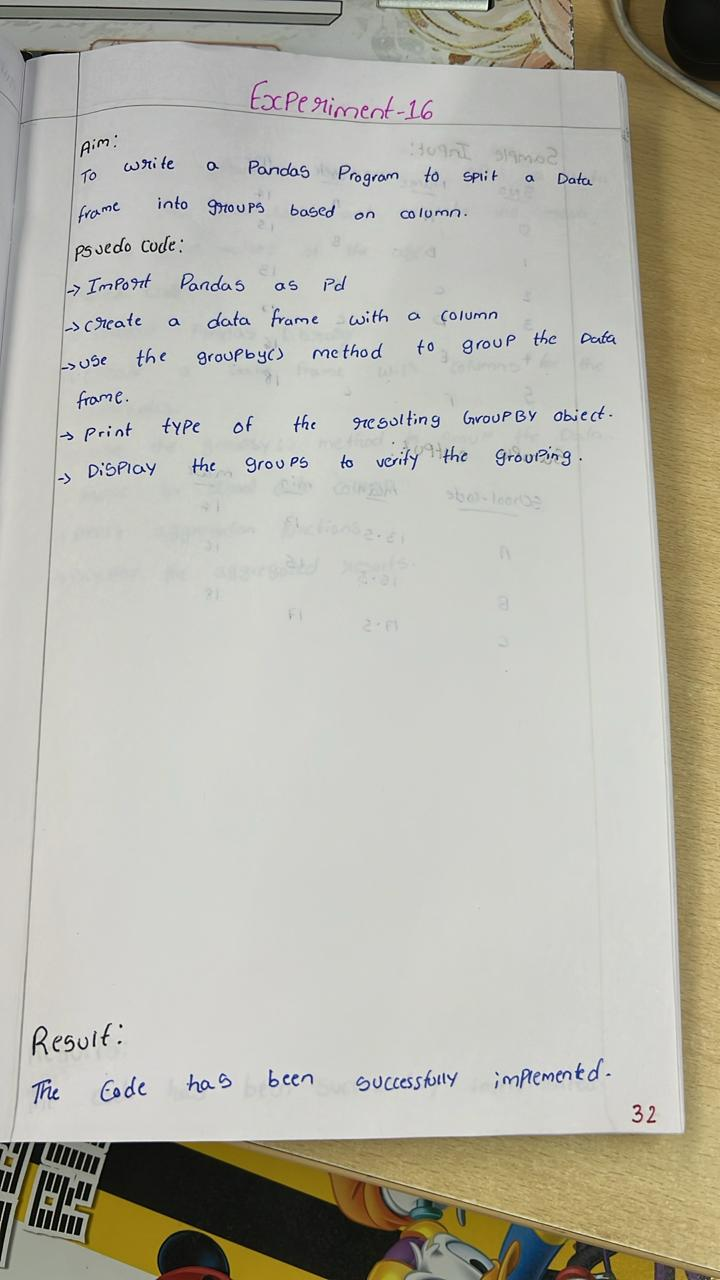 Experiment-16
Aim:
To write a Pandas Program to split a Data
frame into groups based on column.
Psuedo Code:
→ Import Pandas as Pd
→ create a data frame with a column
→ use the groupby() method to group the Data
frame.
→ Print type of the resulting GroupBY object.
→ Display the groups to verify the grouping.
Result:
The Code has been successfully implemented.
32